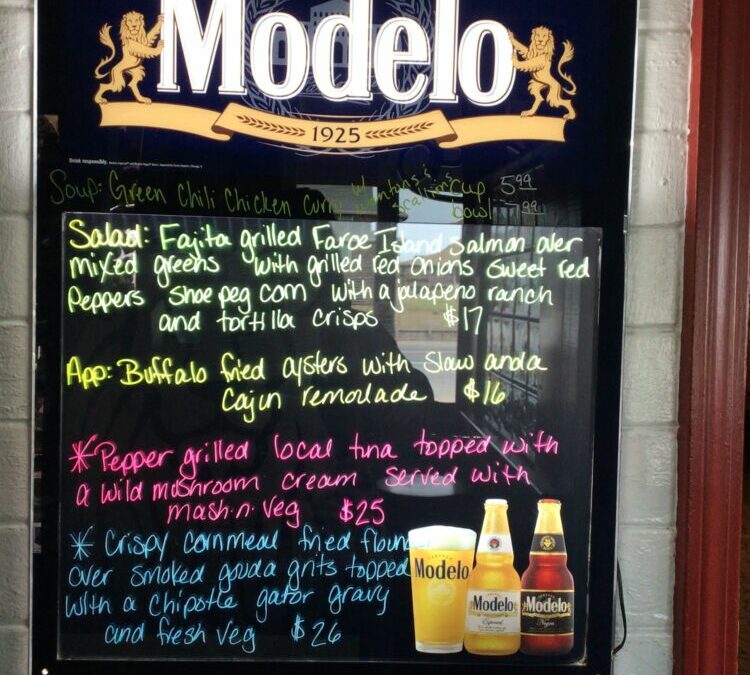 Modelo
1925
Drink responsibly.
Soup: Green Chili Chicken Curry Wontons & Scallions cup 5.99
bowl 7.99
Salad: Fajita grilled Faroe Island Salmon over
mixed greens with grilled red onions sweet red
Peppers shoe peg corn with a jalapeno ranch
and tortilla crisps $17
App: Buffalo fried oysters with Slaw and a
Cajun remoulade $16
* Pepper grilled local tuna topped with
a wild mushroom cream served with
mash n veg $25
* Crispy cornmeal fried floun
over smoked gouda grits topped
with a Chipotle gator gravy
and fresh veg $26
Modelo
Modelo
Especial
Modelo
Negra